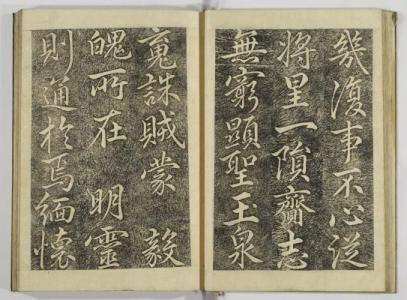 幾復事不心從
將星一隕齎志
無窮顯聖玉泉
寃誅賊蒙 毅
魄所在 明靈
則通於焉緬懷